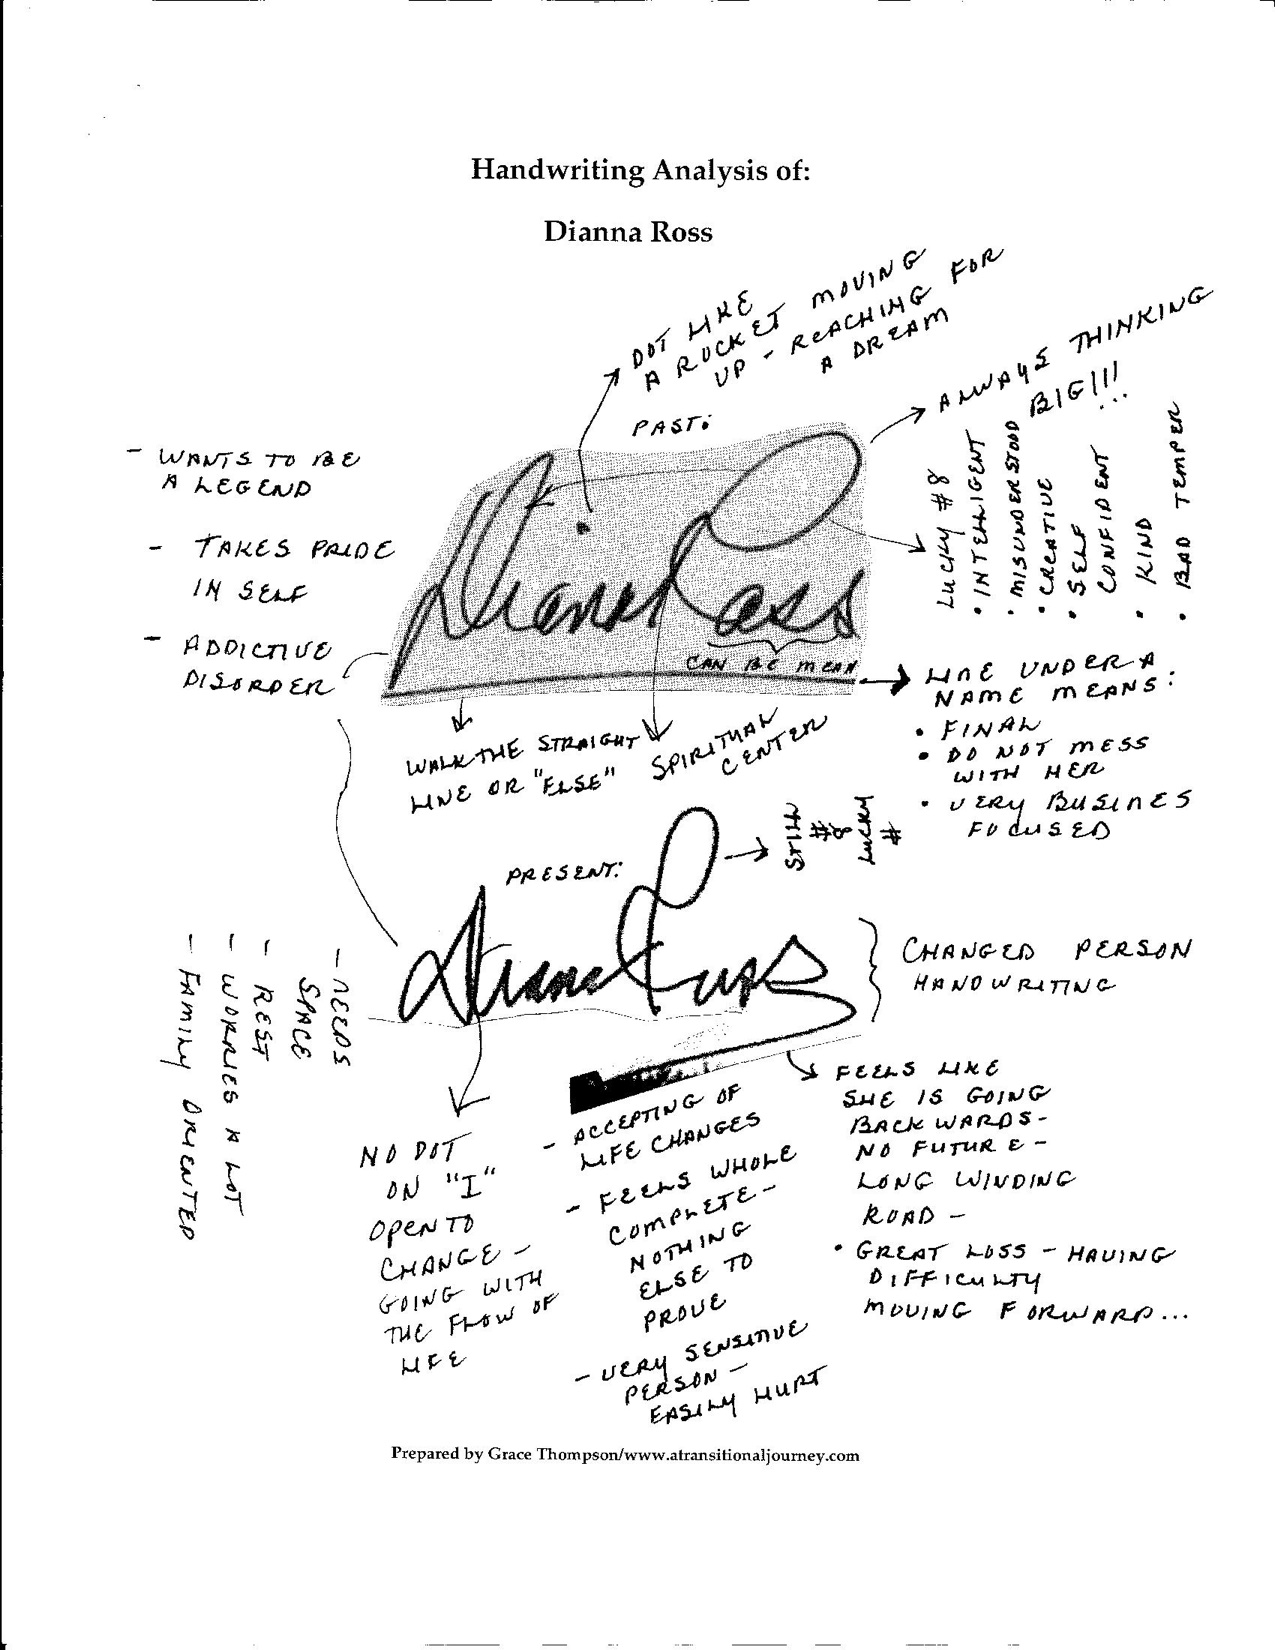 Handwriting Analysis of:
Dianna Ross
DOT LIKE
A ROCKET MOVING
UP - REACHING FOR
A DREAM
ALWAYS THINKING
BIG!!!
...
PAST:
- WANTS TO BE
A LEGEND
- TAKES PRIDE
IN SELF
- ADDICTIVE
DISORDER
Diana Ross
CAN BE MEAN
LUCKY #8
• INTELLIGENT
• MISUNDERSTOOD
• CREATIVE
• SELF
CONFIDENT
• KIND
• BAD TEMPER
LINE UNDER A
NAME MEANS:
• FINAL
• DO NOT MESS
WITH HER
• VERY BUSINES
FOCUSED
WALK THE STRAIGHT
LINE OR "ELSE"
SPIRITUAL
CENTER
PRESENT:
STILL
#8
LUCKY
#
Diana Ross
CHANGED PERSON
HANDWRITING
- NEEDS
SPACE
- REST
- WORRIES A LOT
- FAMILY ORIENTED
NO DOT
ON "I"
OPEN TO
CHANGE -
GOING WITH
THE FLOW OF
LIFE
- ACCEPTING OF
LIFE CHANGES
- FEELS WHOLE
COMPLETE -
NOTHING
ELSE TO
PROVE
- VERY SENSITIVE
PERSON -
EASILY HURT
FEELS LIKE
SHE IS GOING
BACKWARDS -
NO FUTURE -
LONG WINDING
ROAD -
• GREAT LOSS - HAVING
DIFFICULTY
MOVING FORWARD...
Prepared by Grace Thompson/www.atransitionaljourney.com